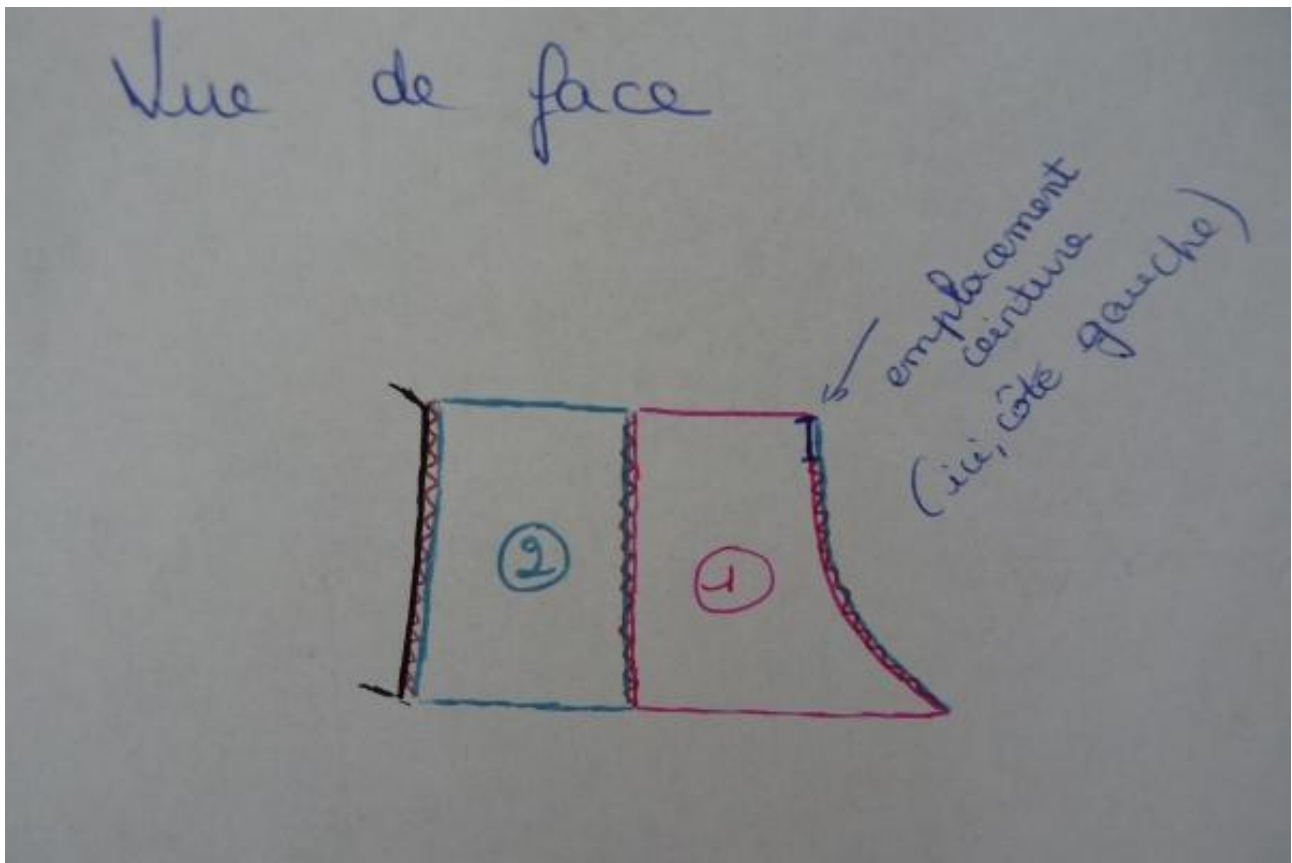 Vue de face
emplacement
ceinture
(ici, côté gauche)
2
1